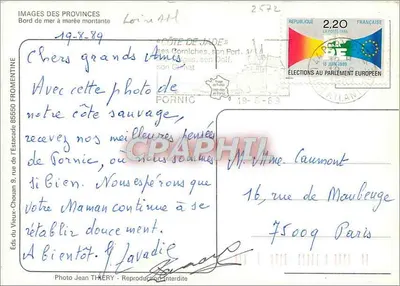 IMAGES DES PROVINCES
Bord de mer à marée montante
Loire Atl
2572
19-8-89
Chers grands Amis
Avec cette photo de
notre côte sauvage,
recevez nos meilleures pensées
de Pornic, où nous sommes
si bien. Nous espérons que
votre Maman continue à se
rétablir doucement.
A bientôt.
"CÔTE DE JADE"
ses Corniches, son Port
PORNIC
19-8-89
RÉPUBLIQUE FRANÇAISE
2,20
ÉLECTIONS AU PARLEMENT EUROPÉEN
M. Mme. Caumont
16, rue de Maubeuge
75009 Paris
CPAPHIL.com
Eds du Vieux-Chouan 8, rue de l'Estacade 85550 FROMENTINE
Photo Jean THIERY - Reproduction interdite